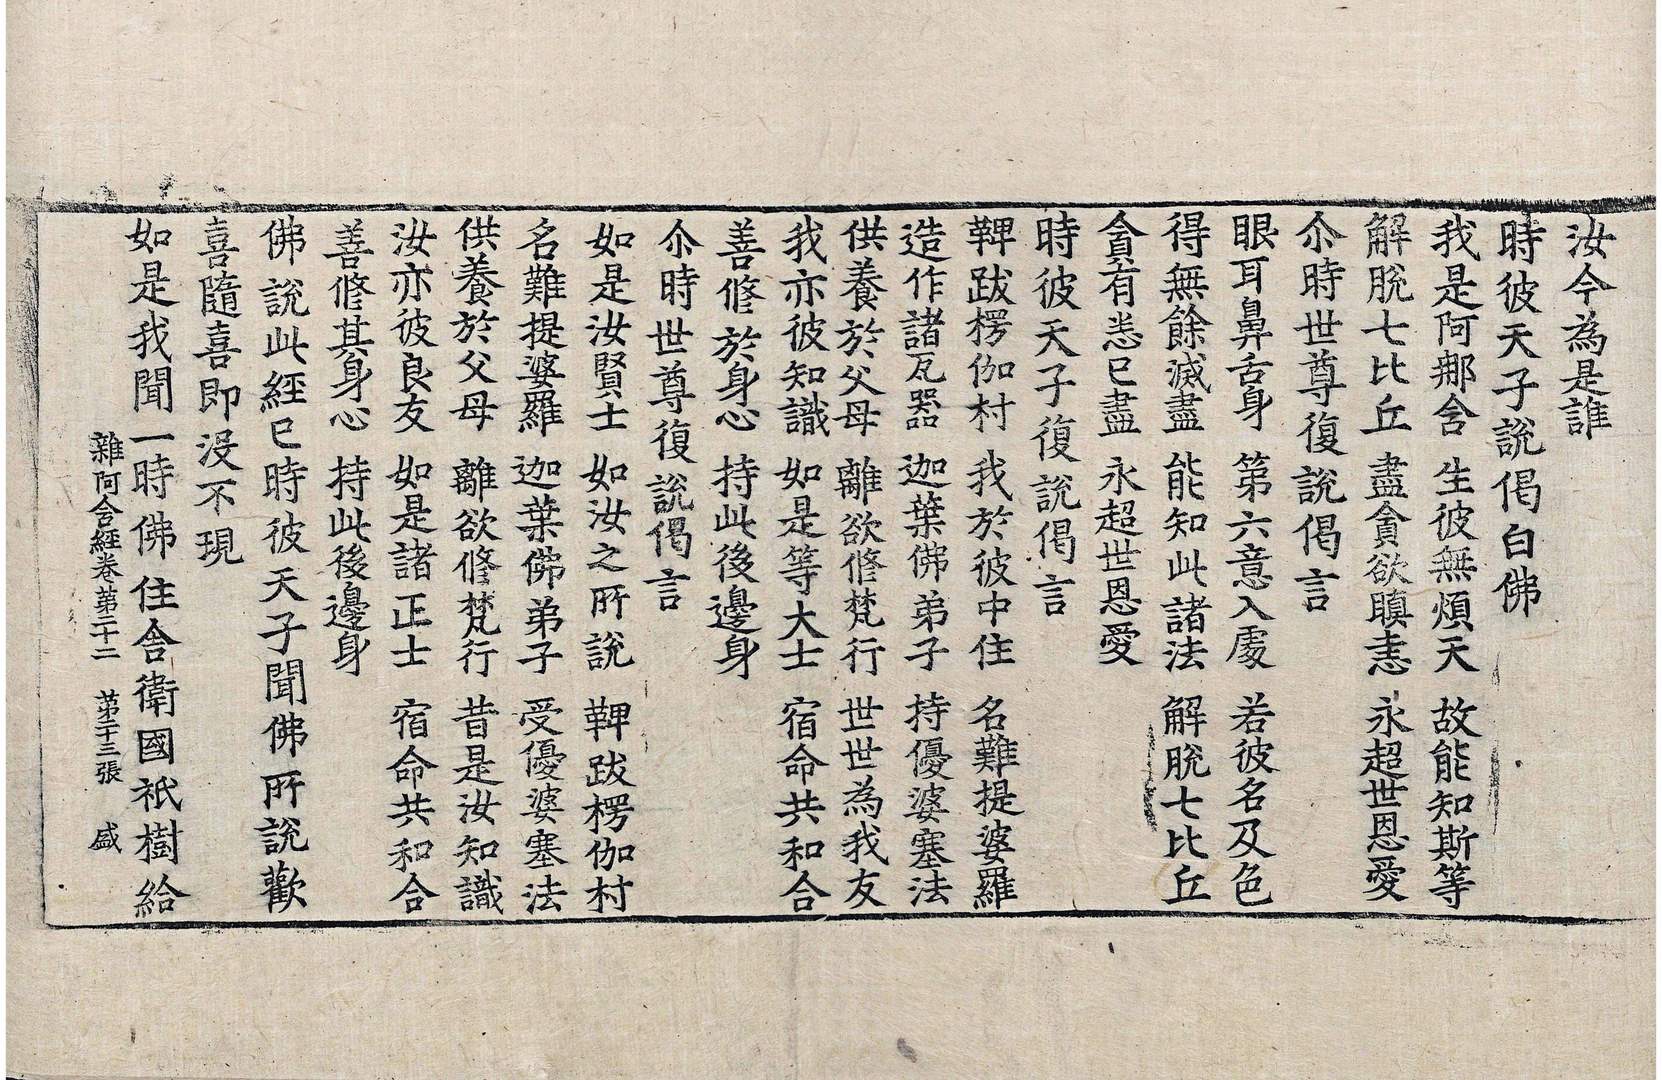 汝今為是誰
時彼天子說偈白佛
我是阿那含　生彼無煩天　故能知斯等
解脫七比丘　盡貪欲瞋恚　永超世恩愛
尒時世尊復說偈言
眼耳鼻舌身　第六意入處　若彼名及色
得無餘滅盡　能知此諸法　解脫七比丘
貪有悉已盡　永超世恩愛
時彼天子復說偈言
鞞跋楞伽村　我於彼中住　名難提婆羅
造作諸瓦器　迦葉佛弟子　持優婆塞法
供養於父母　離欲修梵行　世世為我友
我亦彼知識　如是等大士　宿命共和合
善修於身心　持此後邊身
尒時世尊復說偈言
如是汝賢士　如汝之所說　鞞跋楞伽村
名難提婆羅　迦葉佛弟子　受優婆塞法
供養於父母　離欲修梵行　昔是汝知識
汝亦彼良友　如是諸正士　宿命共和合
善修其身心　持此後邊身
佛說此經已時彼天子聞佛所說歡
喜隨喜即没不現
如是我聞一時佛住舍衛國祇樹給
雜阿含經卷第二十二　第二十三張　盛